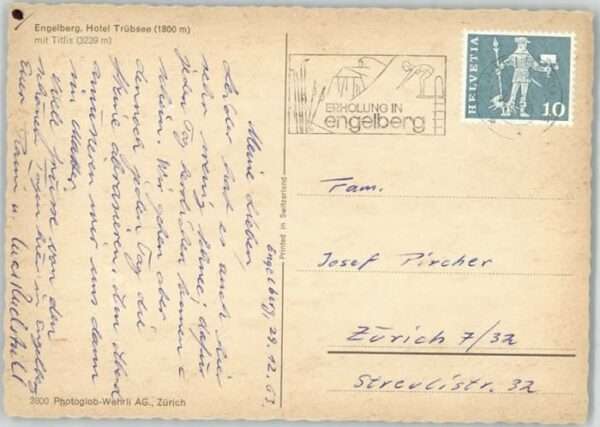 Engelberg, Hotel Trübsee (1800 m)
mit Titlis (3239 m)
Engelberg, 29.12.63.
Meine Lieben,
Leider hat es auch hier
sehr wenig Schnee, dafür
jeden Tag
schein. Wir gehen aber
dennoch jeden Tag die
Am Abend
amüsieren wir uns dann
im
Viele Grüsse von den
schönen Tagen hier in Engelberg
Eure
3800 Photoglob-Wehrli AG., Zürich
Printed in Switzerland
ERHOLUNG IN
engelberg
HELVETIA
10
Fam.
Josef Pircher
Zürich 7/32
Streulistr. 32